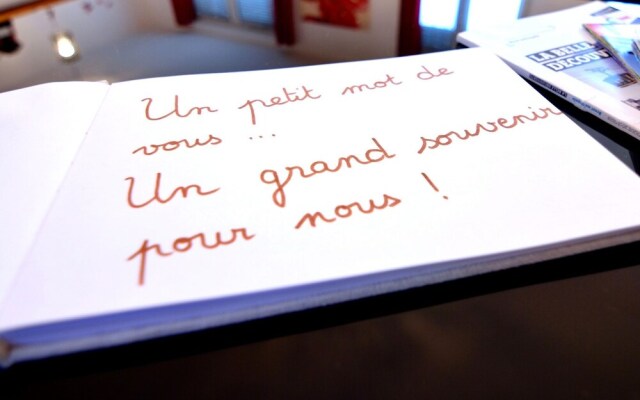 Un petit mot de
vous ...
Un grand souvenir
pour nous !
LA BELLE
DECOUV